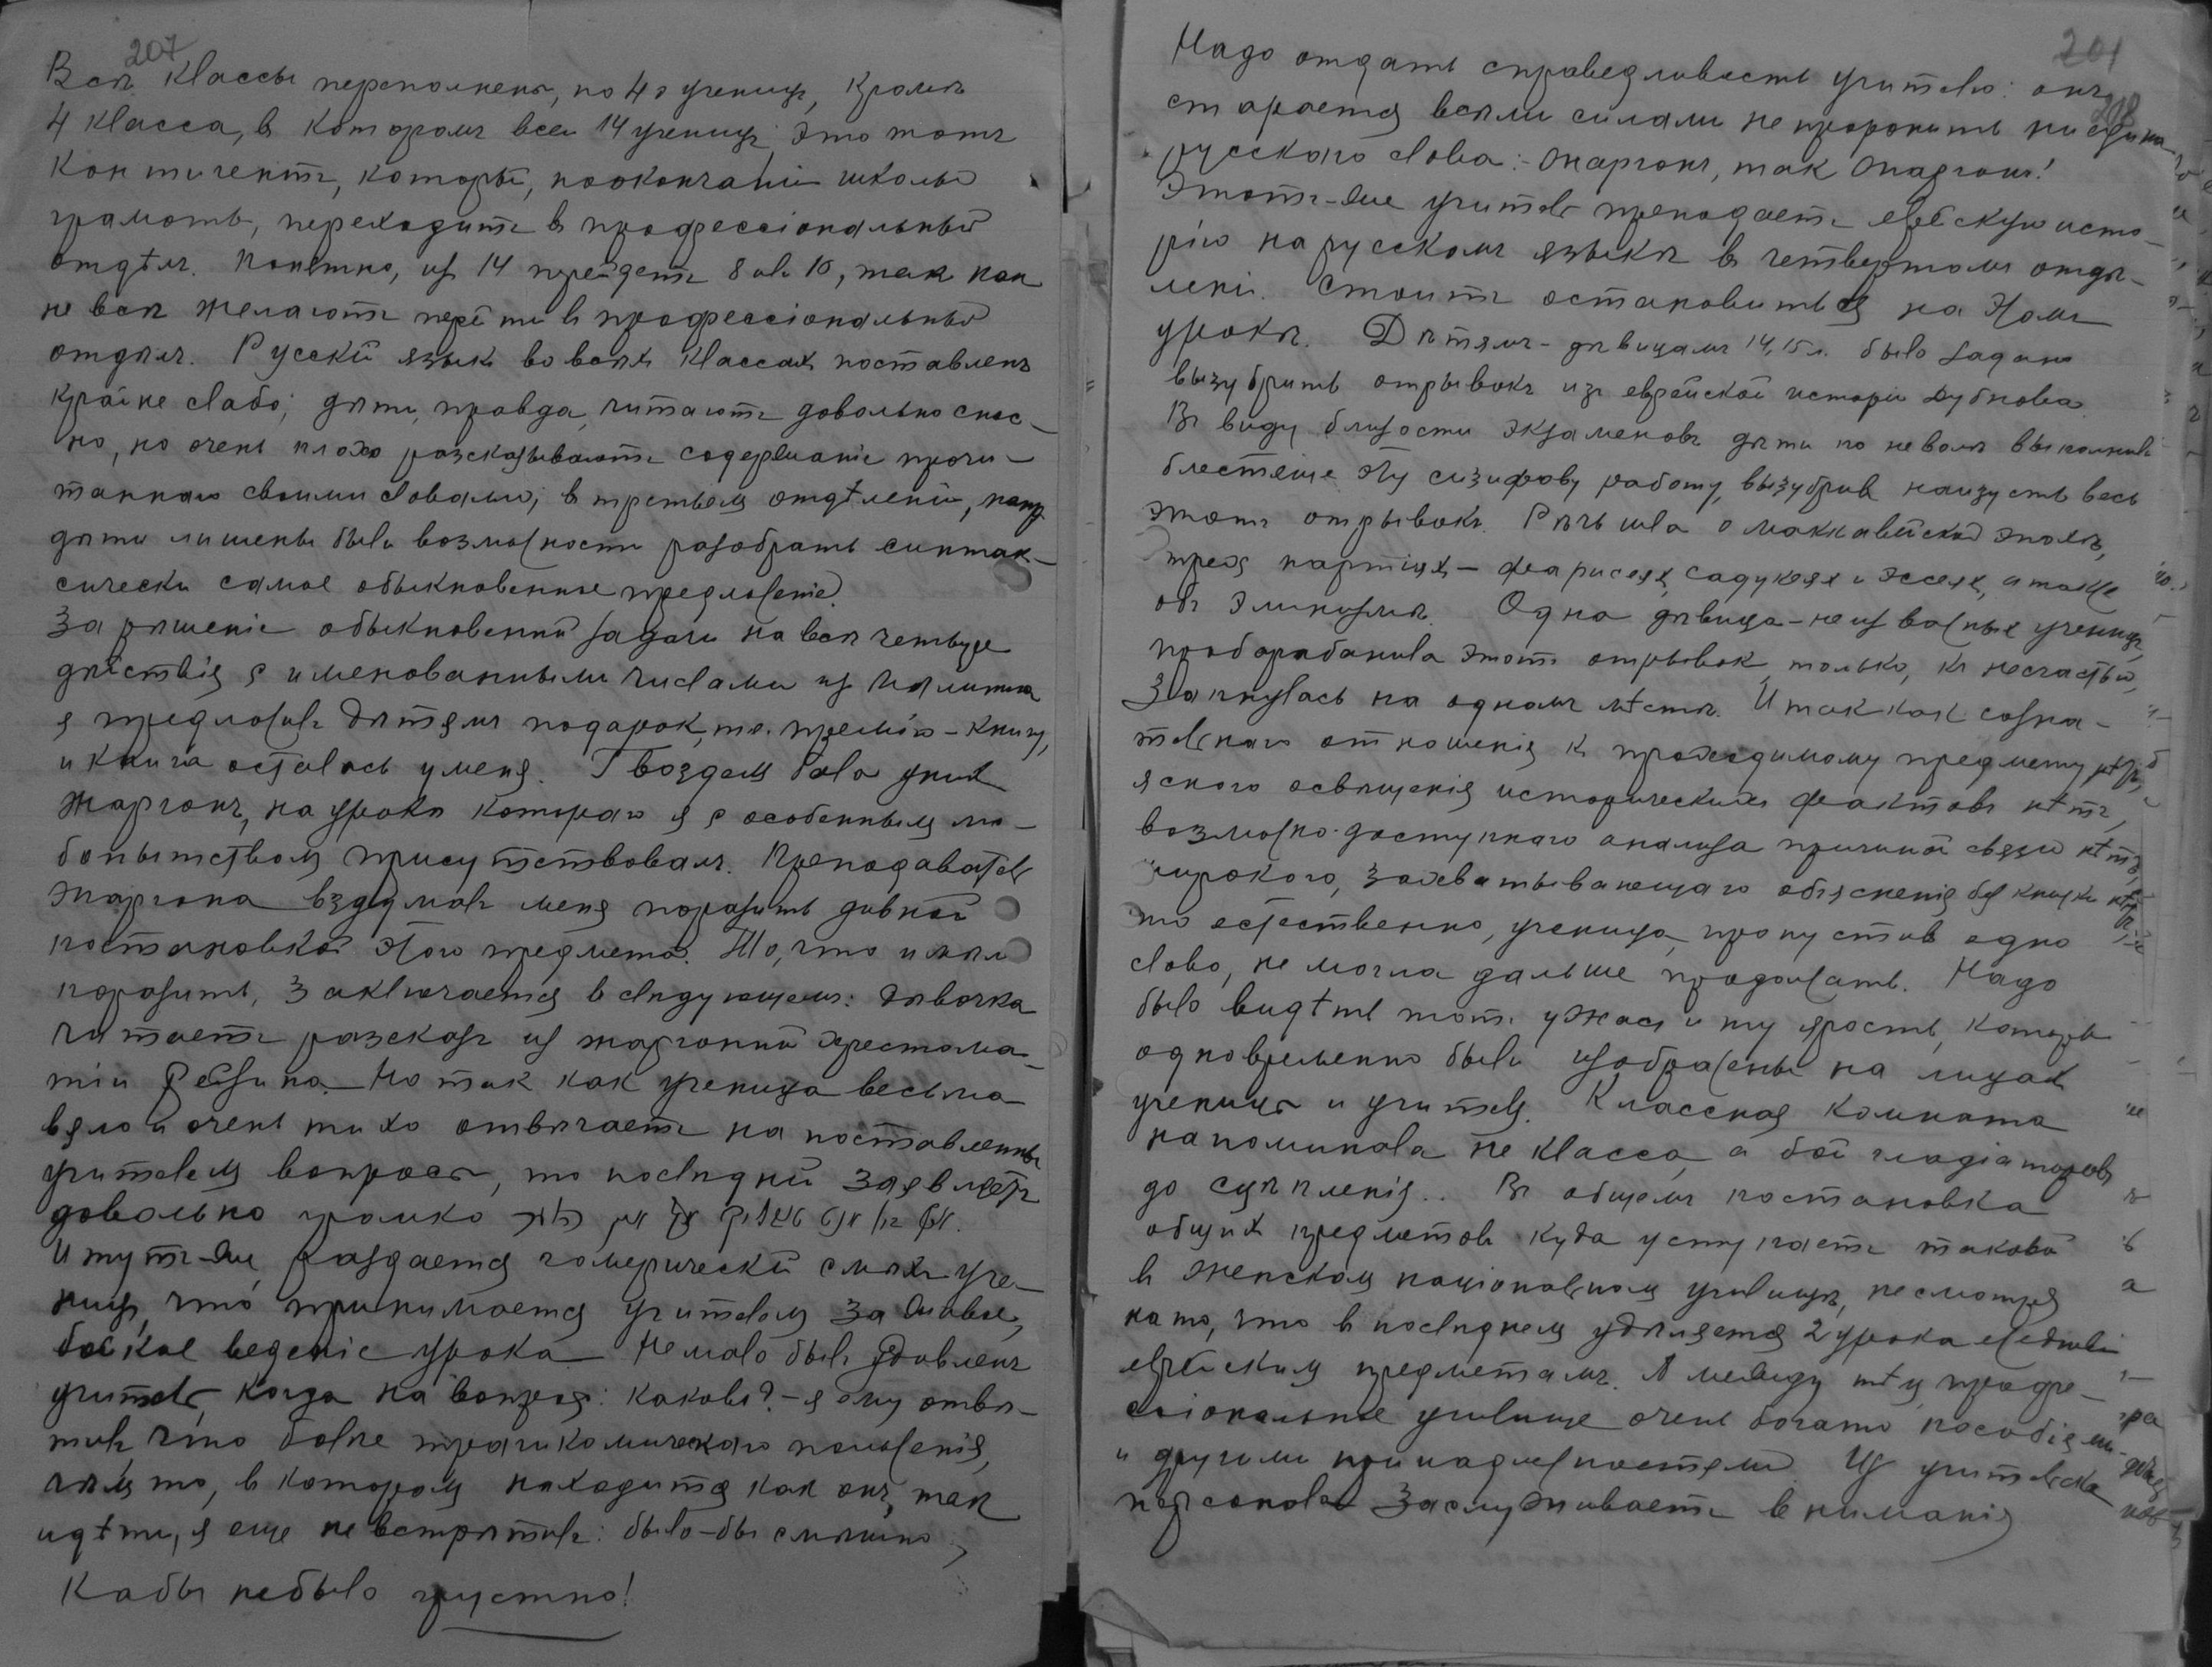 207
Всѣ классы переполнены, по 40 ученицъ, кромѣ
4 класса, в которомъ всеи 14 ученицъ; это тотъ
контингентъ, который, по окончаніи школы
грамоты, переходитъ в профессіональный
отдѣлъ. Понятно, из 14 прейдетъ 8 или 10, так как
не всѣ желаютъ перейти в профессіональный
отдѣлъ. Русскій язык во всѣхъ классах поставленъ
крайне слабо; дѣти, правда, читаютъ довольно снос-
но, но очень плохо разсказываютъ содержаніе прочи-
таннаго своими словами; в третьем отдѣленіи, напр.
дѣти лишены были возможности разобрать синтак-
сически самое обыкновенное предложеніе.
За рѣшеніе обыкновенной задачи на всѣ четыре
дѣйствія с именованными числами из
я предложилъ дѣтямъ подарок, т.е. премію - книгу,
и книга осталась у меня. Гвоздем былъ у них
жаргонъ, на урокѣ котораго я с особенным лю-
бопытством присутствовалъ. Преподаватель
жаргона вздумалъ меня поразить дивной
постановкой этого предмета. То, что имѣло
поразить, заключается в слѣдующемъ: дѣвочка
читаетъ разсказъ из жаргонной хрестома-
тіи Рейзина. Но так как ученица весьма
вяло и очень тихо отвѣчаетъ на поставленные
учителем вопросы, то послѣдній заявляетъ
довольно громко
И тутъ-же раздается гомерическій смѣхъ уче-
ницъ, что принимается учителем за живое,
бойкое веденіе урока. Немало былъ удивленъ
учитель, когда на вопрос: каково? - я ему отвѣ-
тилъ что болѣе трагикомическаго положенія,
чѣм то, в котором находится как онъ, так
и дѣти, я еще не встрѣтилъ: было-бы смѣшно,
кабы не было грустно!
201
208
Надо отдать справедливость учителю: онъ
старается всѣми силами не проронить ни единаго
русскаго слова: - жаргонъ, так жаргонъ!
Этотъ-же учитель преподаетъ еврейскую исто-
рію на русскомъ языкѣ в четвертомъ отдѣ-
леніи. Стоитъ остановиться на этомъ
урокѣ. Дѣтямъ - дѣвицамъ 14, 15 л. было задано
вызубрить отрывокъ изъ еврейской исторіи Дубнова.
Въ виду близости экзаменовъ дѣти по неволѣ выполнили
блестяще эту сизифову работу, вызубрив наизусть весь
этотъ отрывокъ. Рѣчь шла о маккавейской эпохѣ,
трех партіях - фарисеях, садукеях и эссеях, а также
объ эллинизмѣ. Одна дѣвица - не из важных ученицъ,
пробарабанила этотъ отрывок, только, къ несчастью,
заикнулась на одномъ мѣстѣ. И так как созна-
тельнаго отношенія к проходимому предмету нѣтъ,
яснаго освѣщенія историческихъ фактовъ нѣтъ,
возможно-доступнаго анализа причинной связи нѣтъ,
широкаго, захватывающаго объясненія без книжки нѣтъ,
то естественно, ученица, пропустив одно
слово, не могла дальше продолжать. Надо
было видѣть тотъ ужас и ту ярость, которые
одновременно были изображены на лицах
ученицы и учителя. Классная комната
напоминала не класса, а бой гладіаторовъ
до сцѣпленія.. Въ общемъ постановка
общих предметов куда уступаетъ таковой
в женском національном училищѣ, несмотря
на то, что в послѣднем удѣляется 2 урока ежедневно
еврейским предметамъ. А между тѣм профе-
сіональное училище очень богато пособіями
и другими принадлежностями. Из учительскаго
персонала заслуживаетъ вниманія